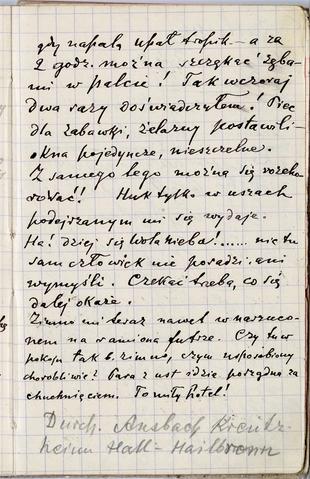 gdy napalą upał tropik – a za
2 godz. można szczękać zęba-
mi w palcie! Tak wczoraj
dwa razy doświadczyłem! Piec
dla zabawki, żelazny postawili –
okna pojedyncze, nieszczelne.
Z samego tego można się rozcho-
rować!! Huk tylko w uszach
podejrzanym mi się wydaje.
Ha! dziej się wola nieba!...... nic tu
sam człowiek nie poradzi ani
wymyśli. Czekać trzeba, co się
dalej okaże.
Zimno mi teraz nawet w narzuco-
nem na ramiona futrze. Czy tu w
pokoju tak b. zimno, czym usposobiony
chorobliwie? Para z ust idzie porządna za
chuchnięciem. To miły hotel!
Durch. Ansbach Kreutz-
heim Hall - Hailbronn